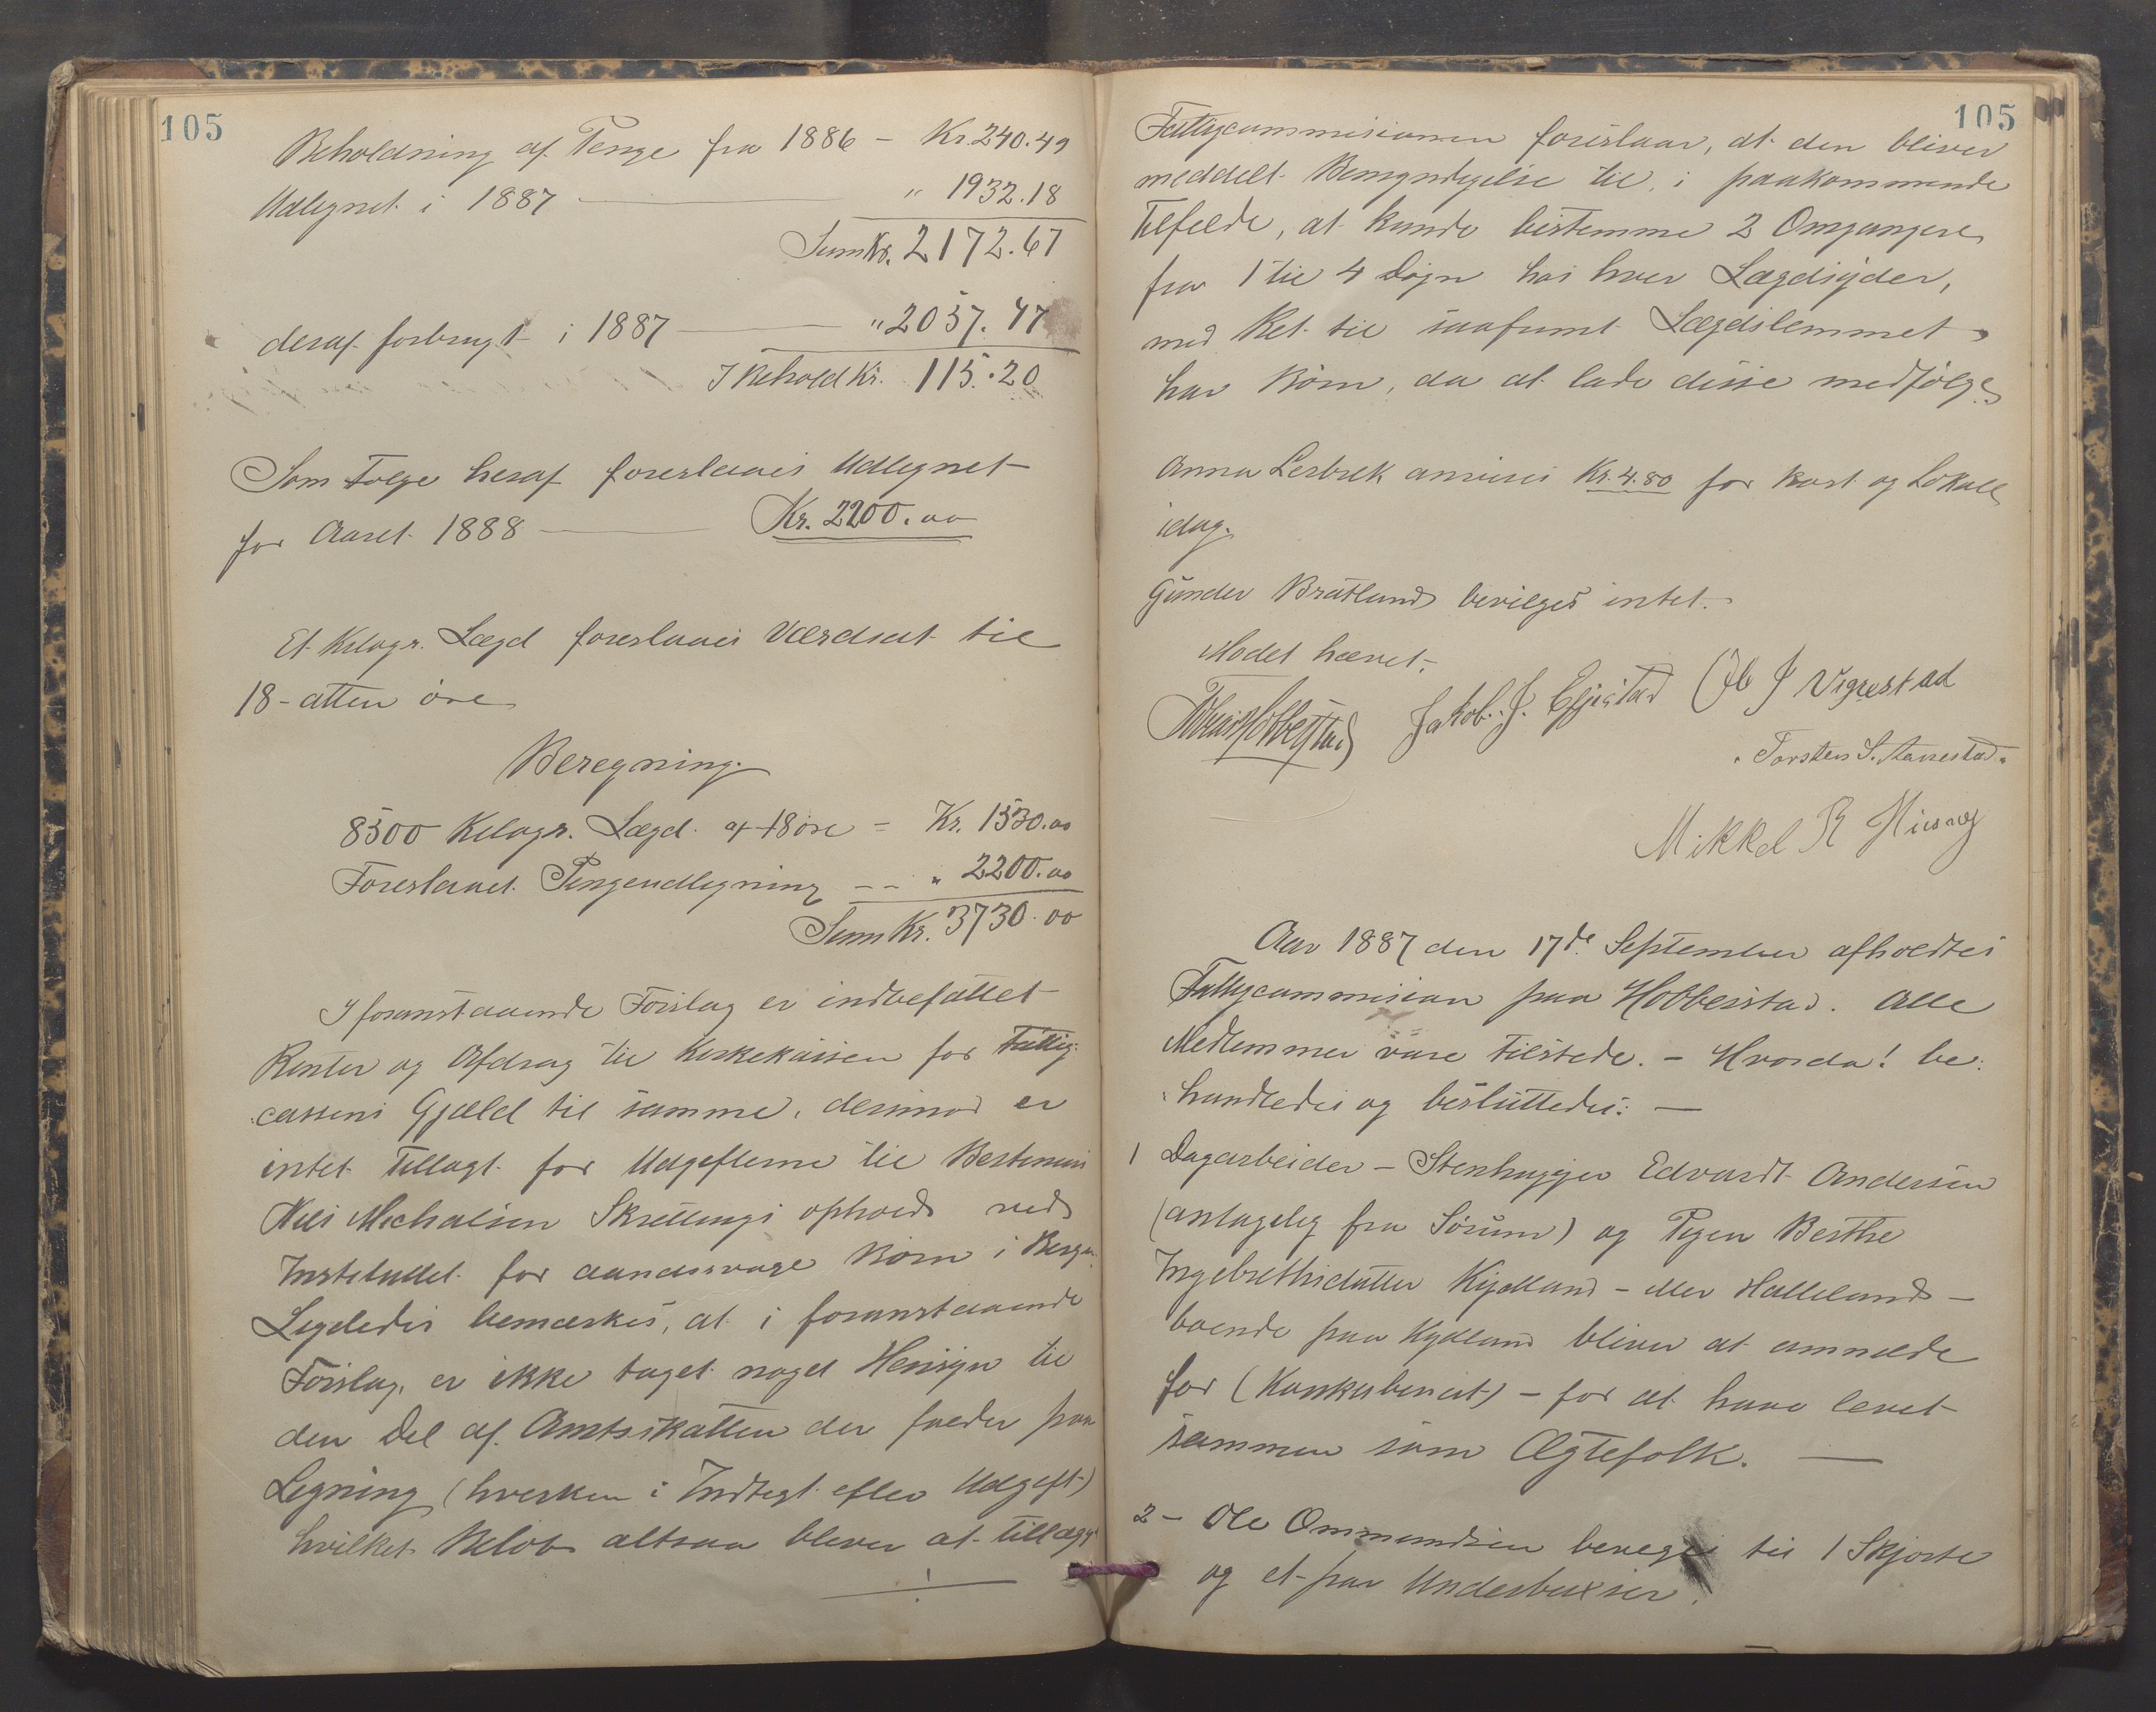 105
Beholdning af Penge fra 1886 – Kr. 240.49
Udlignet i 1887 — " 1932.18
Sum Kr. 2172.67
deraf forbrugt i 1887 — " 2057.47
I Behold Kr. 115.20
Som Følge heraf foreslaaes Udlignet
for Aaret 1888 — Kr. 2200.00
Et Kilogr. Lægd foreslaaes Værdsat til
18 - atten øre
Beregning.
8500 Kilogr. Lægd a 18 øre = Kr. 1530.00
Foreslaaet Pengeudligning – – " 2200.00
Sum Kr. 3730.00
I foranstaaende Forslag er indbefattet
Renter og Afdrag til Kirkekassen for Fattig-
cassens Gjæld til samme, derimod er
intet Tillagt for Udgifterne til Bestemmi
Nils Michalsen Skrettings ophold ved
Institutet for aandssvage Børn i Bergen.
Ligeledes bemærkes, at i foranstaaende
Forslag, er ikke taget noget Hensyn til
den Del af Amtsskatten der falder paa
Ligning (hverken i Indtægt eller Udgift)
hvilket Beløb altsaa bliver at tillægge
105
Fattigcommisionen foreslaar, at den bliver
meddelt Bemyndigelse til, i paakommende
Tilfælde, at kunde bestemme 2 Omgangere
fra 1 til 4 Døgn hos hver Lægdsyder,
med Ret til saafremt Lægdslemmet
har Børn, da at lade disse medfølge
Anna Lerbrek anvises Kr. 4.80 for kost og Lokale
idag.
Gunder Bratland bevilges intet.
Mødet hævet.
Tobias Hobbestad Jakob. J. Egjestad Ole J Vigrestad
Torsten S. Aarrestad.
Mikkel R
Aar 1887 den 17de September afholdtes
Fattigcommision paa Hobbesstad. Alle
Medlemmer vare Tilstede. – Hvorda! be-
handledes og besluttedes: —
1 Dagarbeider – Stenhugger Edvardt Andersen
(antagelig fra Sørum) og Pigen Berthe
Ingebrethsdatter Kydland – eller Hælleland –
boende paa Kydland bliver at anmælde
for (Konkubinat) – for at have levet
sammen som Ægtefolk. —
2 – Ole Ommundsen beveges til 1 Skjorte
og et par Underbuxser.